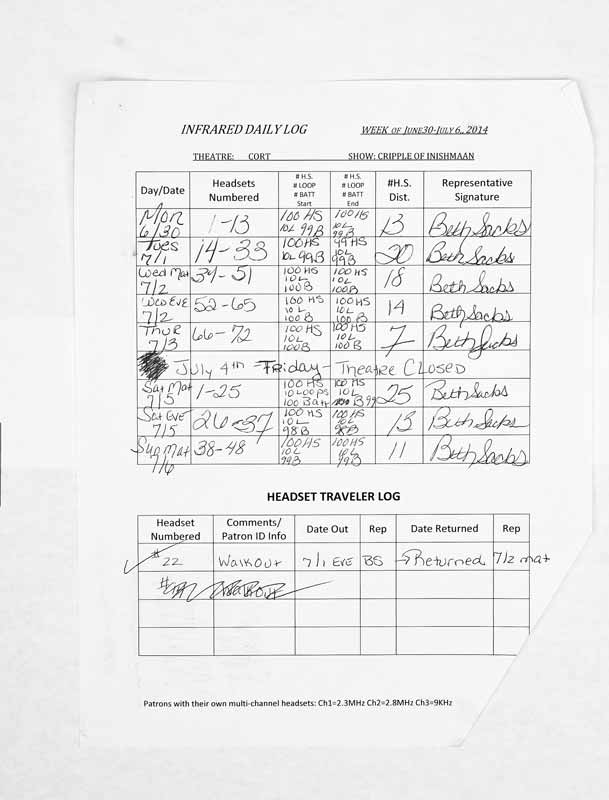 INFRARED DAILY LOG WEEK OF JUNE30-JULY 6, 2014
THEATRE: CORT SHOW: CRIPPLE OF INISHMAAN
Day/Date Headsets Numbered # H.S. # LOOP # BATT Start # H.S. # LOOP # BATT End #H.S. Dist. Representative Signature
Mon 6/30 1-13 100 HS 10L 99B 100 HS 10L 99B 13 Beth Sacks
Tues 7/1 14-33 100 HS 10L 99B 99 HS 10L 99B 20 Beth Sacks
Wed Mat 7/2 34-51 100 HS 10L 100B 100 HS 10L 100B 18 Beth Sacks
Wed EVE 7/2 52-65 100 HS 10L 100B 100 HS 10L 100B 14 Beth Sacks
Thur 7/3 66-72 100 HS 10L 100B 100 HS 10L 100B 7 Beth Sacks
July 4th - Friday - Theatre Closed
Sat Mat 7/5 1-25 100 HS 10 Loops 100 Batt 100 HS 10L 99 25 Beth Sacks
Sat EVE 7/5 26-37 100 HS 10L 98B 100 HS 10L 98B 13 Beth Sacks
Sun Mat 7/6 38-48 100 HS 10L 99B 100 HS 10L 99B 11 Beth Sacks
HEADSET TRAVELER LOG
Headset Numbered Comments/ Patron ID Info Date Out Rep Date Returned Rep
#22 Walkout 7/1 EVE BS →Returned 7/2 mat
Patrons with their own multi-channel headsets: Ch1=2.3MHz Ch2=2.8MHz Ch3=9KHz